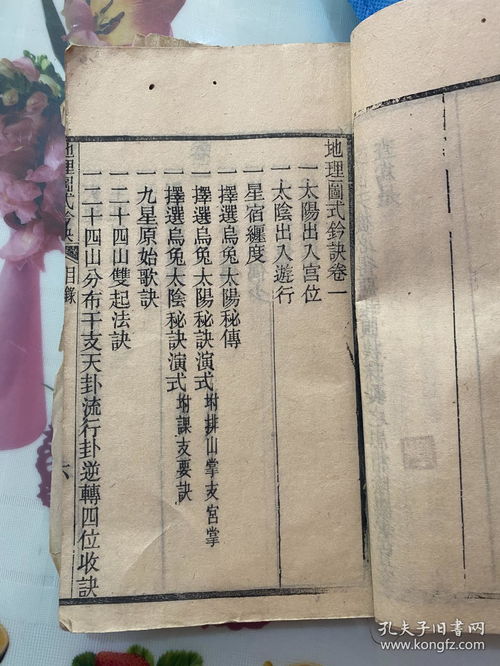 地理圖式鈐訣卷一
一太陽出入宮位
一太陰出入遊行
一星宿纏度
一擇選烏兔太陽秘傳
一擇選烏兔太陽秘訣演式 坿排山掌支宮掌
一擇選烏兔太陰秘訣演式 坿課支要訣
一九星原始歌訣
一二十四山雙起法訣
一二十四山分布干支天卦流行卦逆轉四位收訣
地理圖式 目錄
六
孔夫子旧书网
kongfz.com